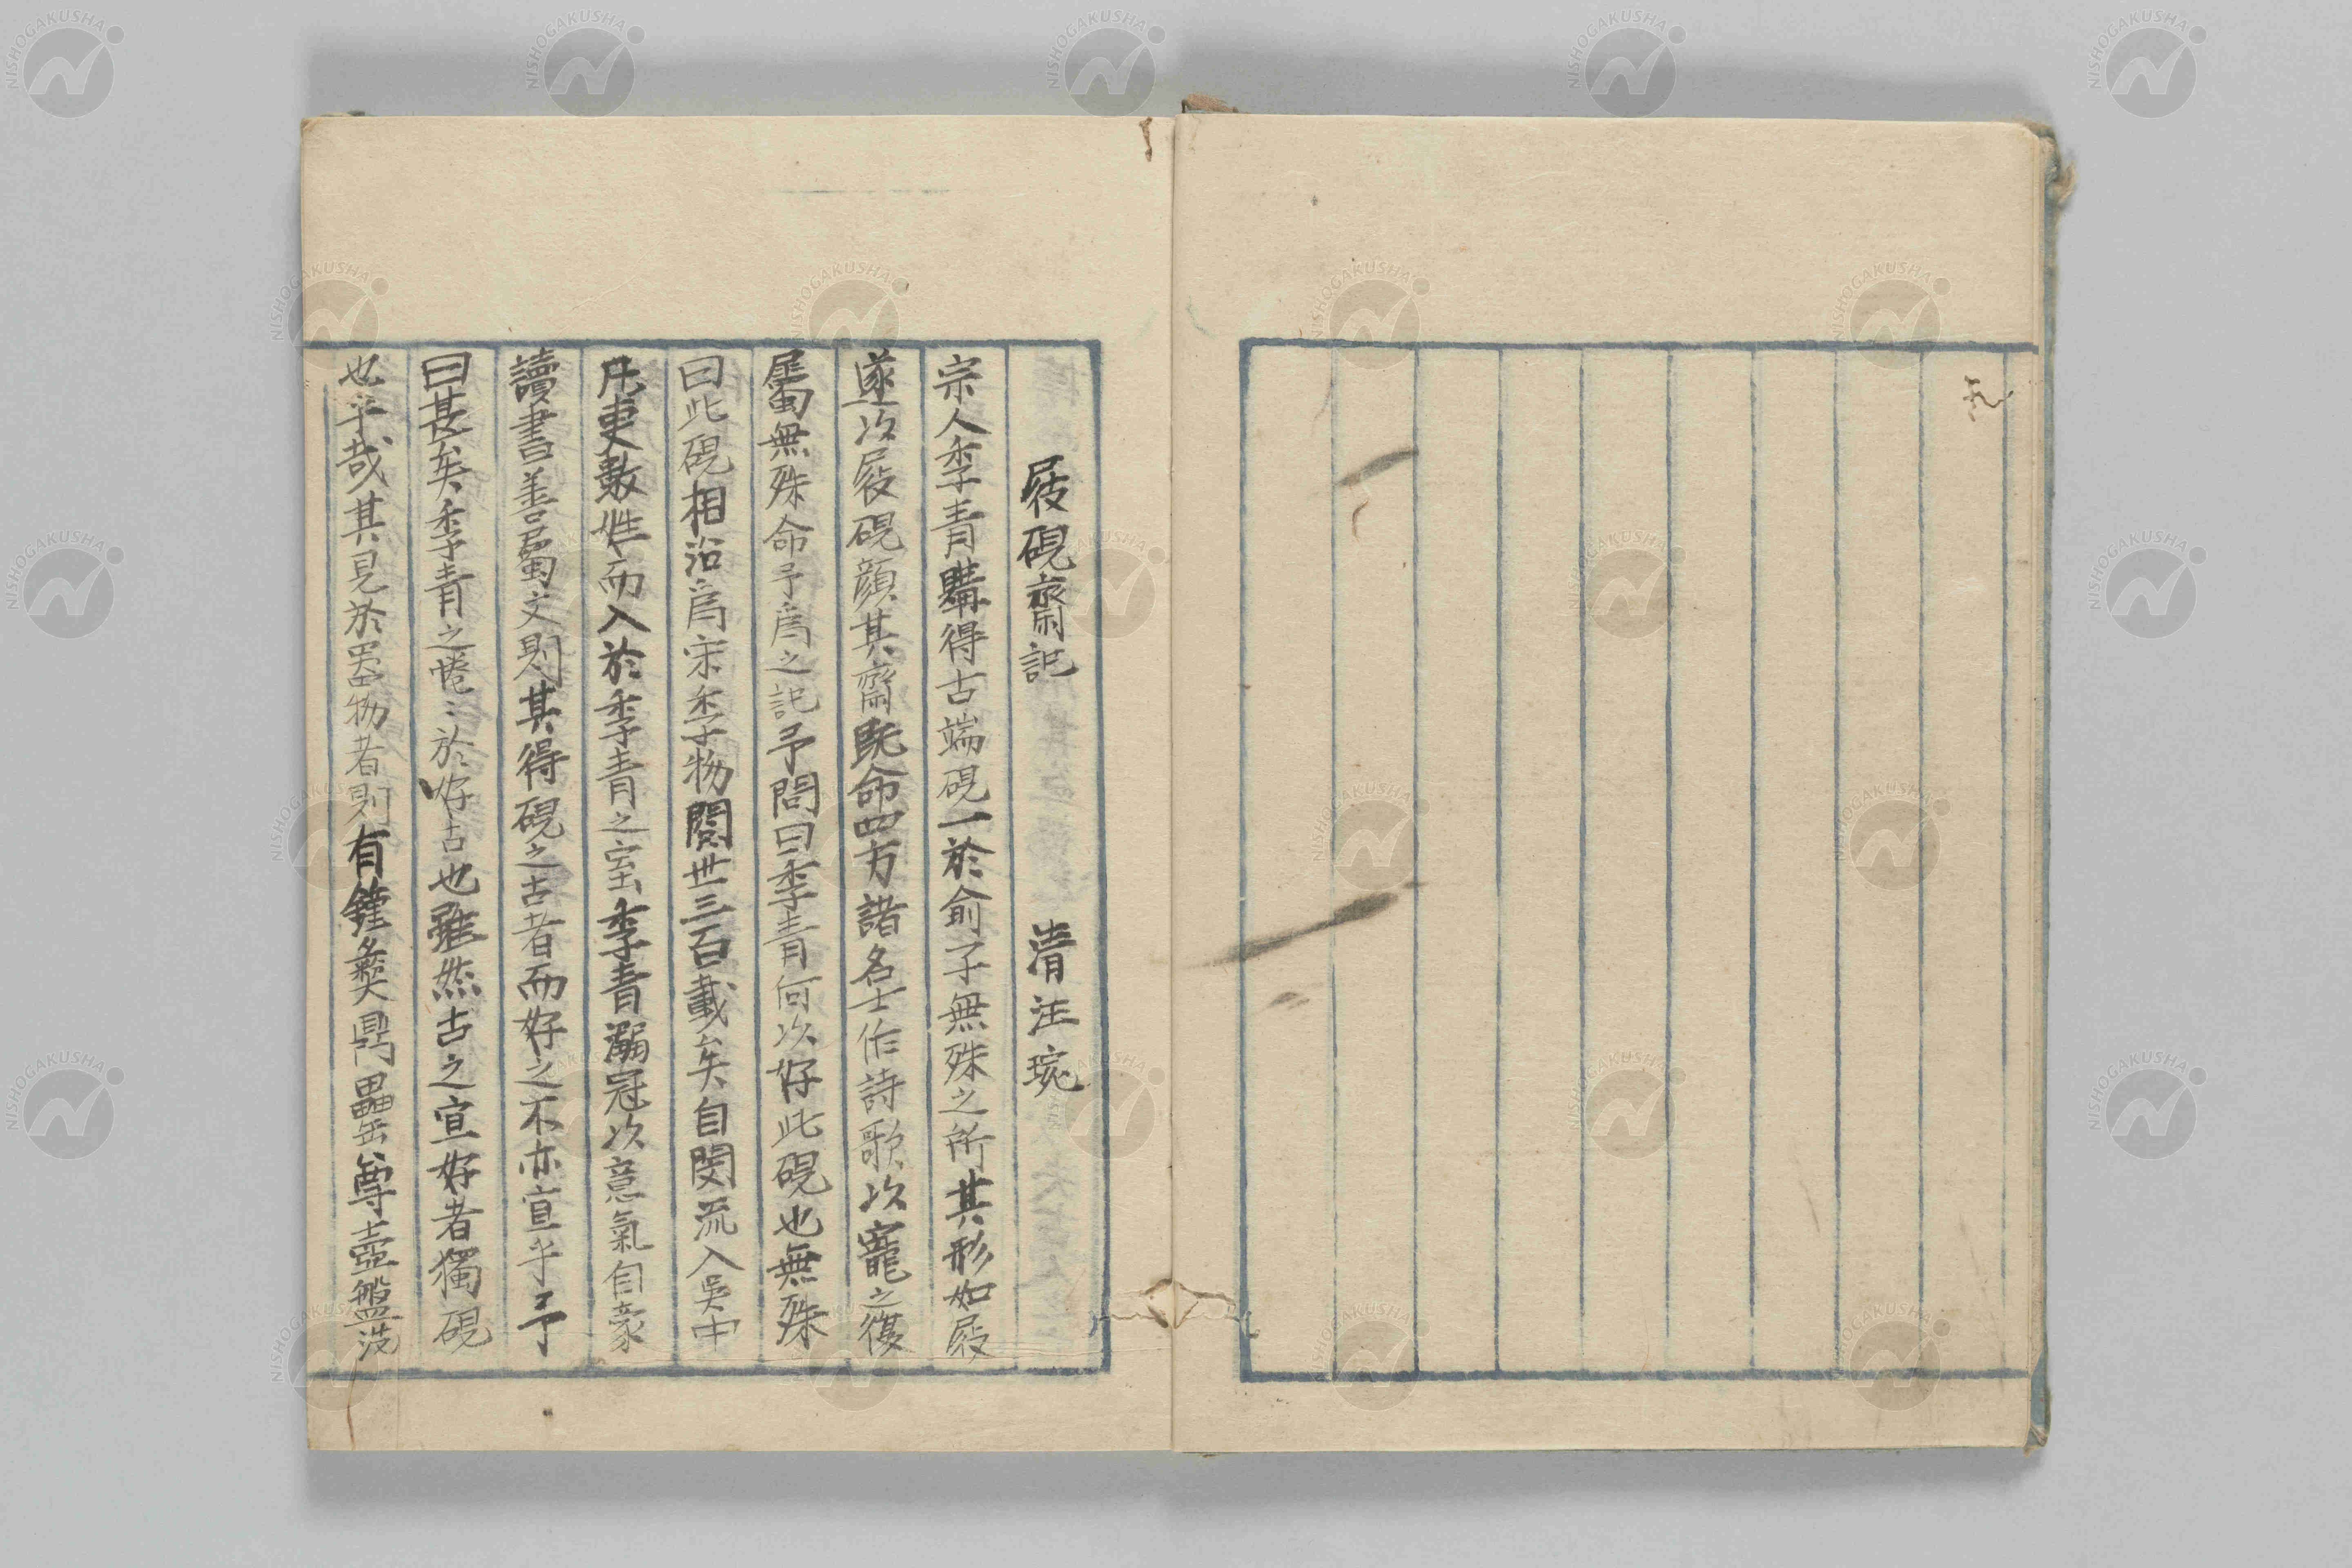 屐硯齋記　清汪琬
宗人季青購得古端硯一於俞子無殊之所其形如屐
遂以屐硯顔其齋既命四方諸名士作詩歌以寵之復
屬無殊命予爲之記予問曰季青何以好此硯也無殊
曰此硯相沿爲宋季物閲世三百載矣自閩流入吳中
凡更數姓而入於季青之室季青弱冠以意氣自豪
讀書善屬文則其得硯之古者而好之不亦宜乎予
曰甚矣季青之惓〻於好古也雖然古之宜好者獨硯
也乎哉其見於器物者則有鐘彝鼎罍尊壺盤洗
NISHOGAKUSHA